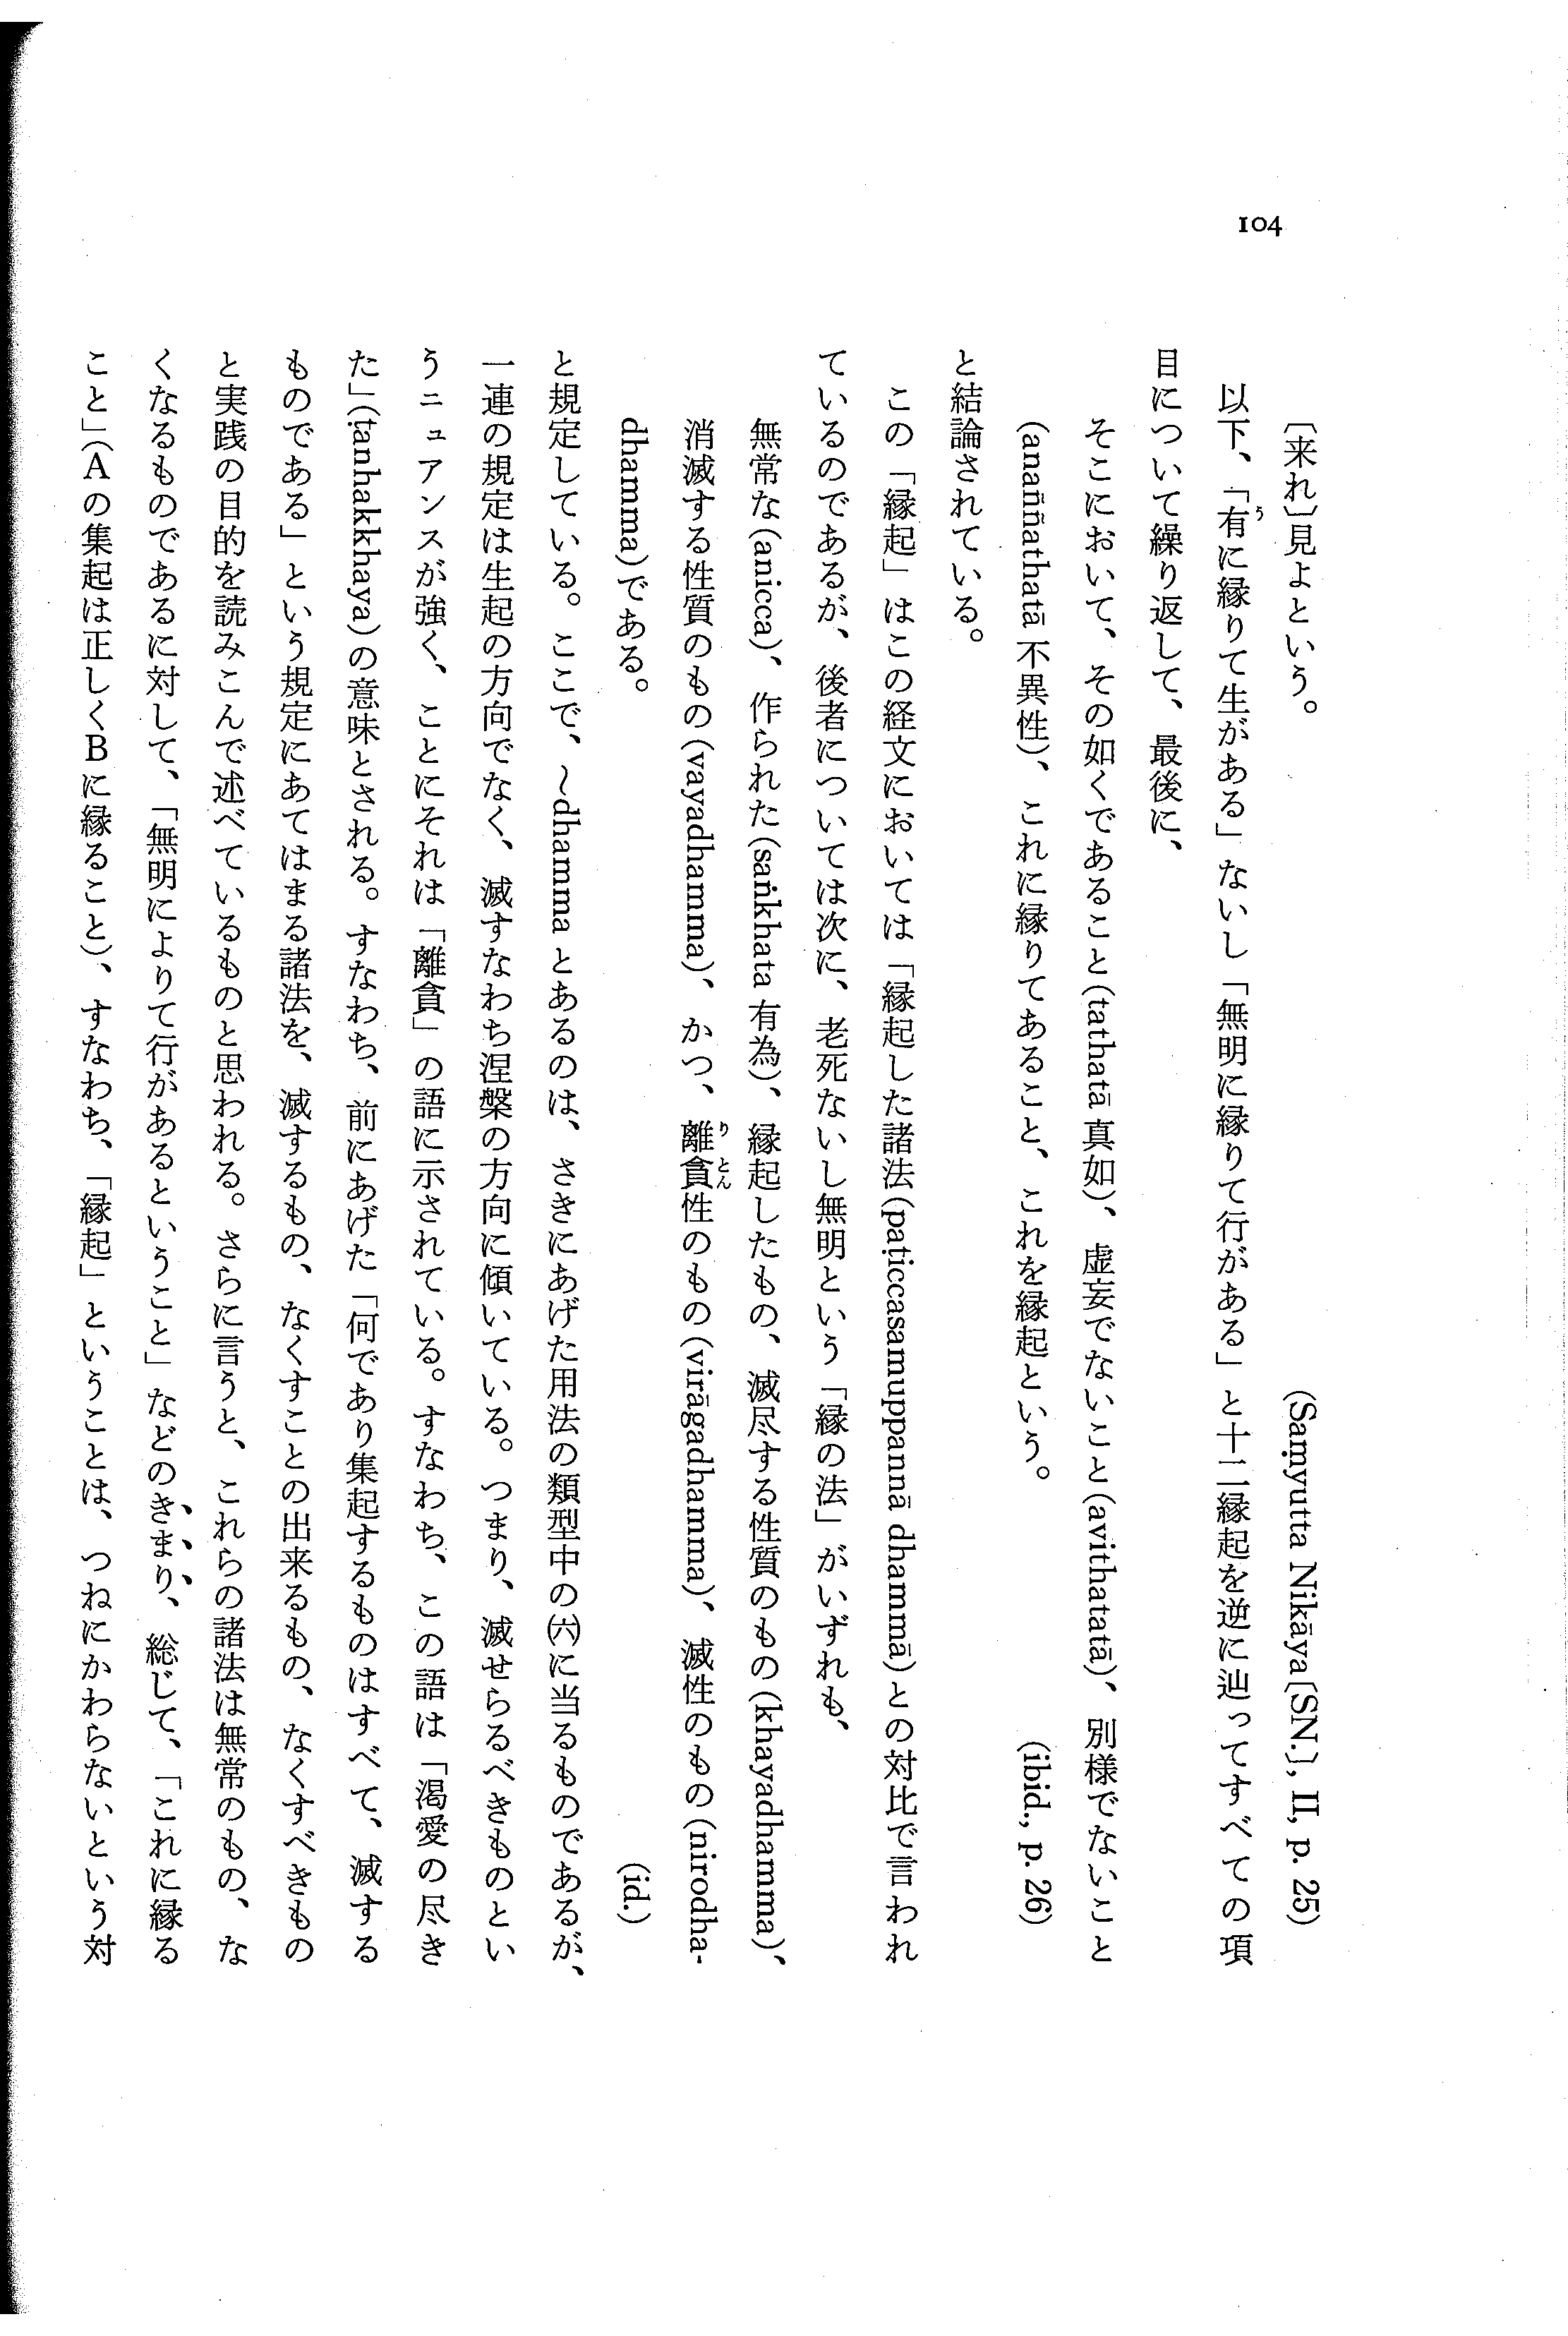 104
〔来れ〕見よという。 (Saṃyutta Nikāya〔SN.〕, II, p. 25)
以下、「有に縁りて生がある」ないし「無明に縁りて行がある」と十二縁起を逆に辿ってすべての項
目について繰り返して、最後に、
そこにおいて、その如くであること(tathatā 真如)、虚妄でないこと(avithatatā)、別様でないこと
(anaññathatā 不異性)、これに縁りてあること、これを縁起という。 (ibid., p. 26)
と結論されている。
この「縁起」はこの経文においては「縁起した諸法(paṭiccasamuppannā dhammā)との対比で言われ
ているのであるが、後者については次に、老死ないし無明という「縁の法」がいずれも、
無常な(anicca)、作られた(saṅkhata 有為)、縁起したもの、滅尽する性質のもの(khayadhamma)、
消滅する性質のもの(vayadhamma)、かつ、離貪性のもの(virāgadhamma)、滅性のもの(nirodha-
dhamma)である。 (id.)
と規定している。ここで、~dhamma とあるのは、さきにあげた用法の類型中の㈥に当るものであるが、
一連の規定は生起の方向でなく、滅すなわち涅槃の方向に傾いている。つまり、滅せらるべきものとい
うニュアンスが強く、ことにそれは「離貪」の語に示されている。すなわち、この語は「渇愛の尽き
た」(ṭanhakkhaya)の意味とされる。すなわち、前にあげた「何であり集起するものはすべて、滅する
ものである」という規定にあてはまる諸法を、滅するもの、なくすことの出来るもの、なくすべきもの
と実践の目的を読みこんで述べているものと思われる。さらに言うと、これらの諸法は無常のもの、な
くなるものであるに対して、「無明によりて行があるということ」などのきまり、総じて、「これに縁る
こと」(Aの集起は正しくBに縁ること)、すなわち、「縁起」ということは、つねにかわらないという対